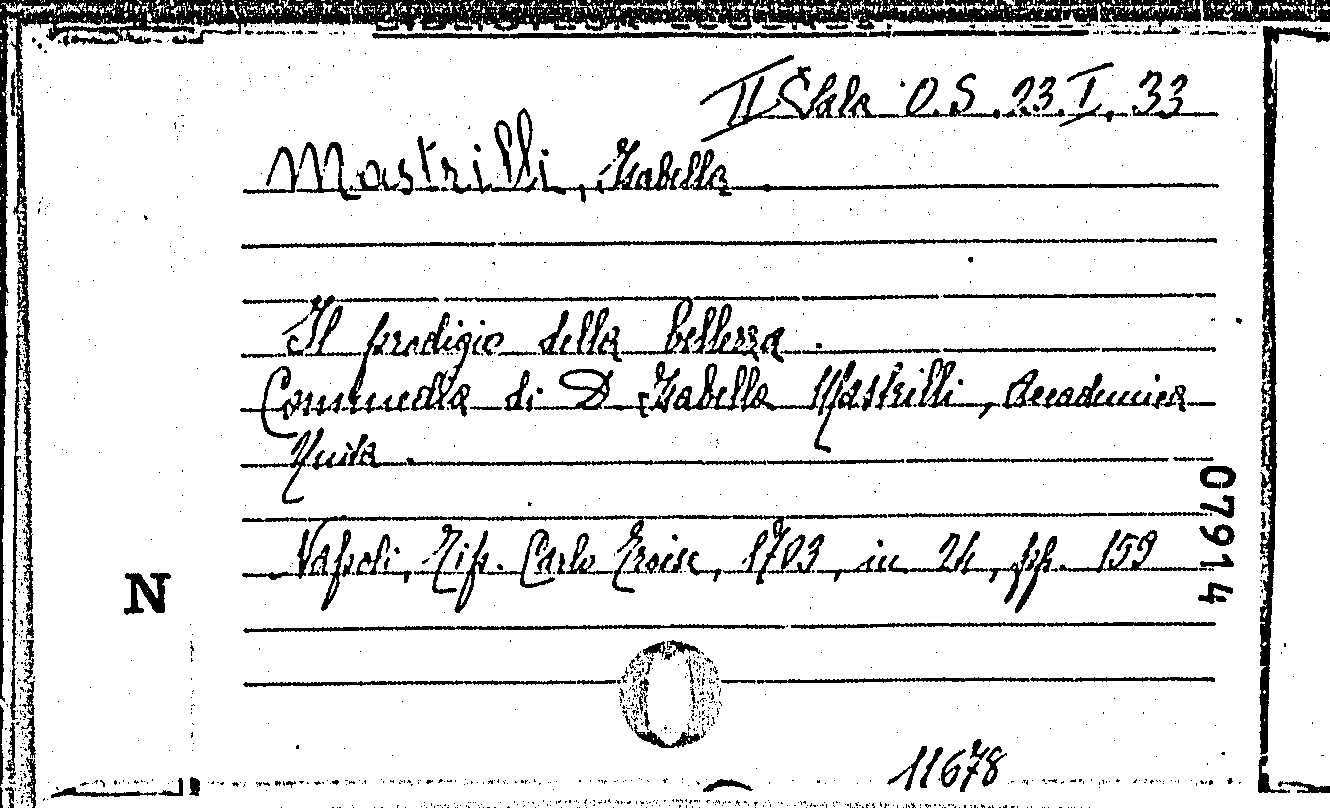 II Sala O.S. 23.I.33
Mastrilli, Isabella.
Il prodigio della bellezza.
Commedia di D. Isabella Mastrilli, Accademica
Unita.
Napoli, Tip. Carlo Troise, 1703, in 24, pp. 159
07914
N
11678